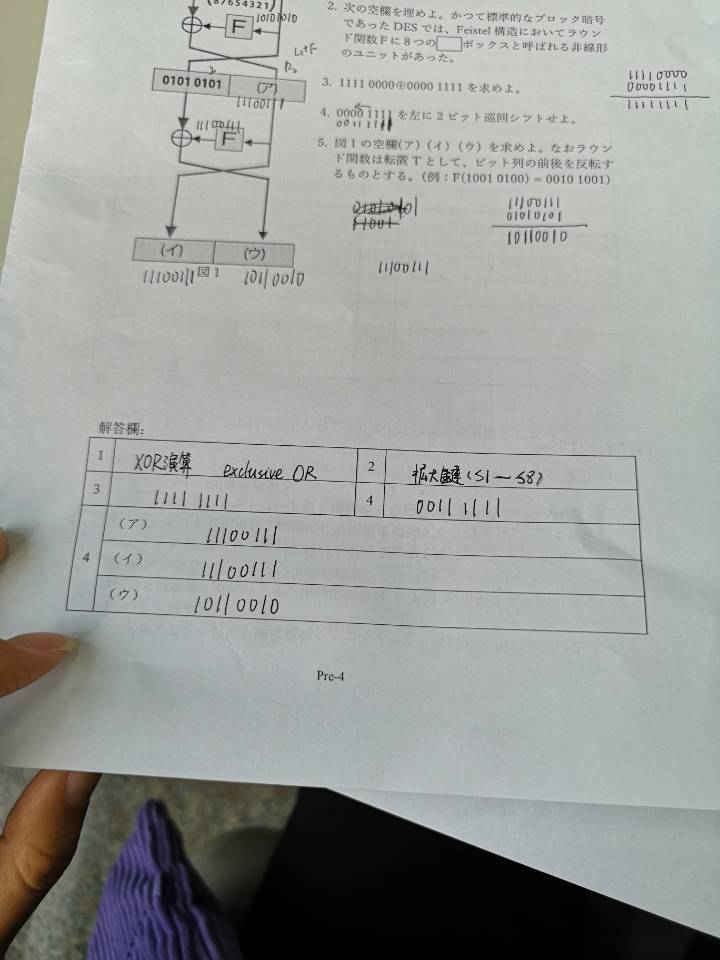 (87654321)
10101010
F
L₁+F
R₂
2
0101 0101
(ア)
11100111
11100111
F
(イ)
(ウ)
11100111
図 1
10110010
2. 次の空欄を埋めよ。かつて標準的なブロック暗号
であった DES では、Feistel 構造においてラウン
ド関数 F に 8 つの ボックスと呼ばれる非線形
のユニットがあった。
3. 1111 0000⊕0000 1111 を求めよ。
00001111
11110000
11111111
4. 0000 1111 を左に 2 ビット巡回シフトせよ。
5. 図 1 の空欄(ア) (イ) (ウ) を求めよ。なおラウン
ド関数は転置 T として、ビット列の前後を反転す
るものとする。(例：F(1001 0100) = 0010 1001)
11100111
01010101
10110010
11100111
解答欄:
1 XOR演算 exclusive OR
2 拡大鍵(S1—S8)
3 1111 1111
4 0011 1111
4
(ア) 11100111
(イ) 11100111
(ウ) 10110010
Pre-4